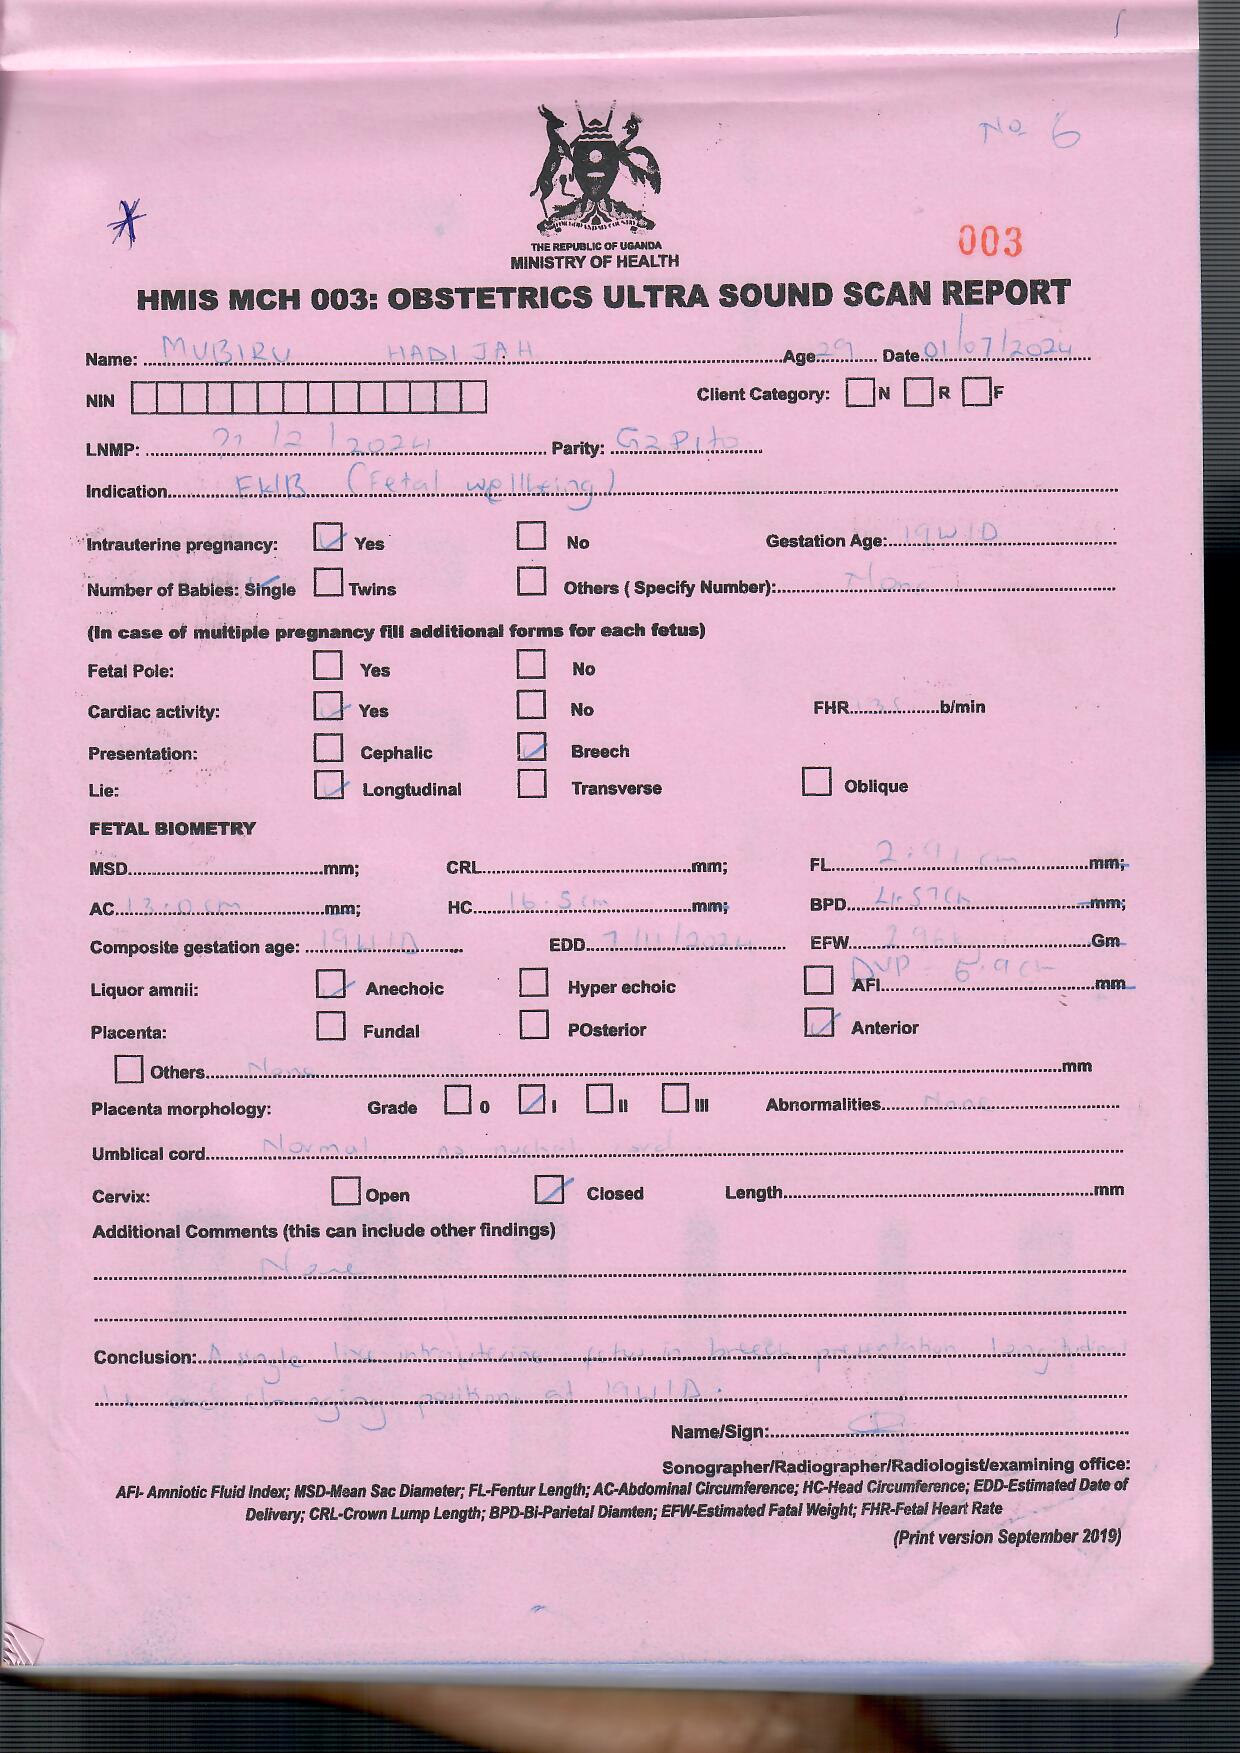 No 6
003
THE REPUBLIC OF UGANDA
MINISTRY OF HEALTH
HMIS MCH 003: OBSTETRICS ULTRA SOUND SCAN REPORT
Name: MUBIRU HADIJAH Age 29 Date 01/07/2024
NIN Client Category: N R F
LNMP: /2/2024 Parity: G2P1+0
Indication FWB (Fetal wellbeing)
Intrauterine pregnancy: Yes No Gestation Age: 19W1D
Number of Babies: Single Twins Others ( Specify Number): None
(In case of multiple pregnancy fill additional forms for each fetus)
Fetal Pole: Yes No
Cardiac activity: Yes No FHR b/min
Presentation: Cephalic Breech
Lie: Longtudinal Transverse Oblique
FETAL BIOMETRY
MSD mm; CRL mm; FL 2.91 cm mm;
AC 13.0cm mm; HC 16.5cm mm; BPD 4.57cm mm;
Composite gestation age: 19W1D EDD 7/11/2024 EFW Gm
Liquor amnii: Anechoic Hyper echoic AFI DVP - 5.9cm mm
Placenta: Fundal POsterior Anterior
Others None mm
Placenta morphology: Grade 0 I II III Abnormalities None
Umblical cord Normal no nuchal cord
Cervix: Open Closed Length mm
Additional Comments (this can include other findings)
None
Conclusion: A single live intrauterine fetus in breech presentation longitudinal
lie and changing position at 19W1D.
Name/Sign:
Sonographer/Radiographer/Radiologist/examining office:
AFI- Amniotic Fluid Index; MSD-Mean Sac Diameter; FL-Fentur Length; AC-Abdominal Circumference; HC-Head Circumference; EDD-Estimated Date of
Delivery; CRL-Crown Lump Length; BPD-Bi-Parietal Diamten; EFW-Estimated Fatal Weight; FHR-Fetal Heart Rate
(Print version September 2019)